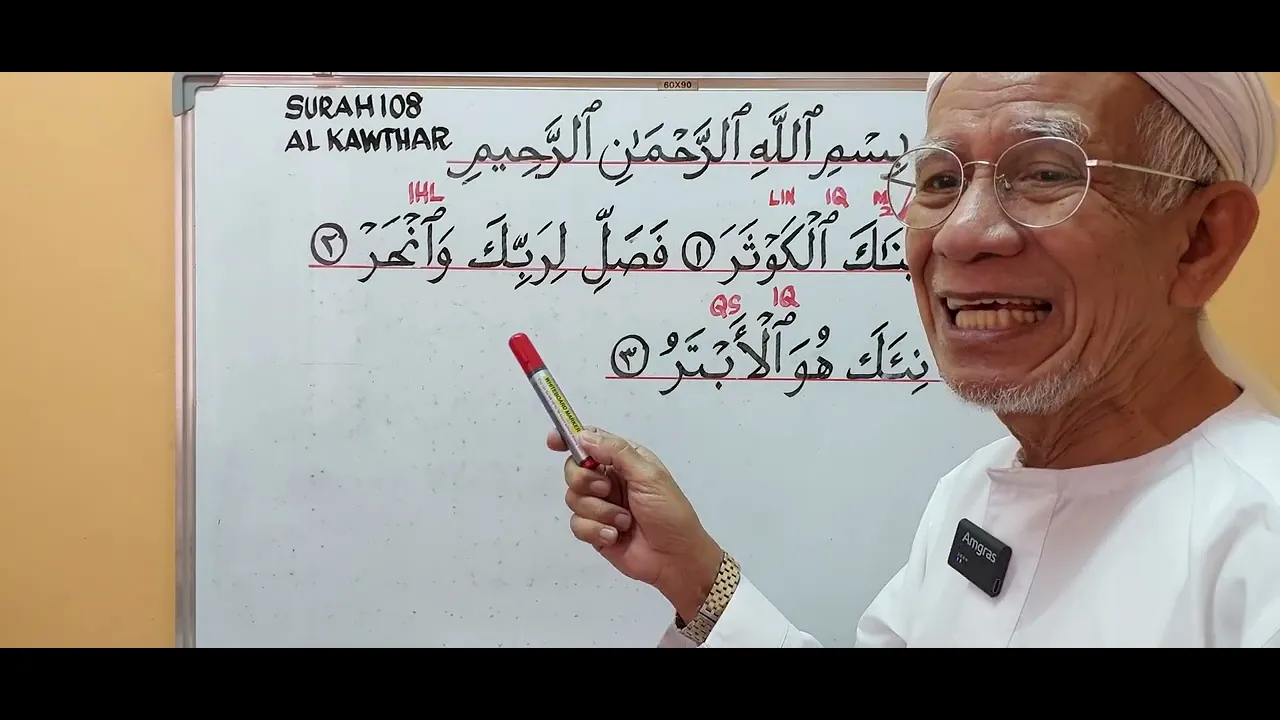 60X90
SURAH 108
AL KAWTHAR
بِسْمِ ٱللَّهِ ٱلرَّحْمَـٰنِ ٱلرَّحِيمِ
IHL LIN IQ
ٱلْكَوْثَرَ ١ فَصَلِّ لِرَبِّكَ وَٱنْحَرْ ٢
QS IQ
هُوَ ٱلْأَبْتَرُ ٣
WHITEBOARD MARKER
Amgras